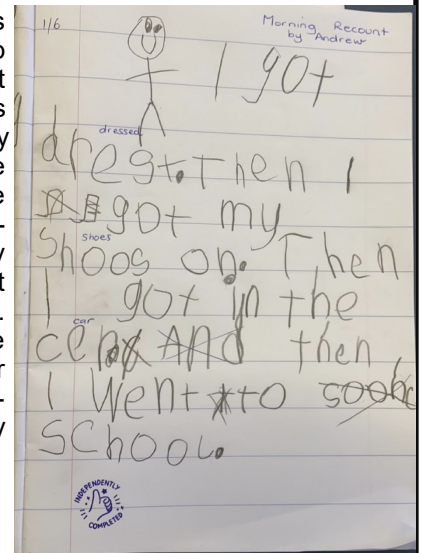 1/6
Morning Recount
by Andrew
I got
dressed
drest. Then I
got my
shoes
Shoos on. Then
I got in the
car
cen And then
I went to soohc
School.
INDEPENDENTLY
COMPLETED